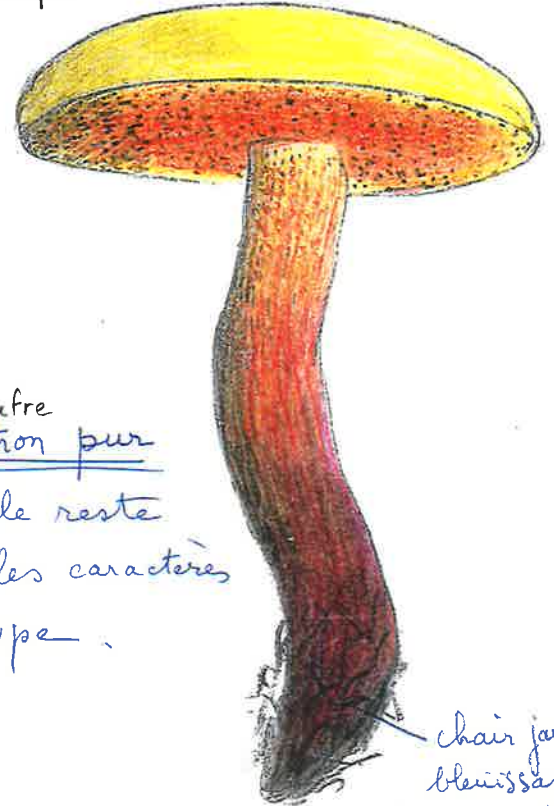 afre
tron pur
le reste
les caractères
ype.
chair ja
bleuissa